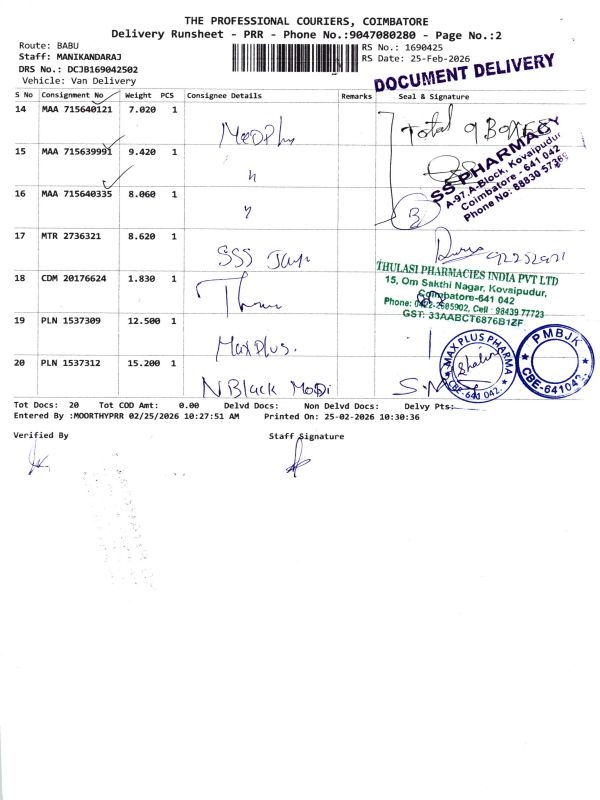 THE PROFESSIONAL COURIERS, COIMBATORE
Delivery Runsheet - PRR - Phone No.:9047080280 - Page No.:2
Route: BABU
Staff: MANIKANDARAJ
DRS No.: DCJB169042502
Vehicle: Van Delivery
RS No.: 1690425
RS Date: 25-Feb-2026
DOCUMENT DELIVERY
S No Consignment No Weight PCS Consignee Details Remarks Seal & Signature
14 MAA 715640121 7.020 1
Total 9 Boxes
15 MAA 715639991 9.420 1
SS PHARMACY
A-97,A-Block, Kovaipudur,
Coimbatore - 641 042
Phone No: 88830 57369
16 MAA 715640335 8.060 1
3
17 MTR 2736321 8.620 1
SSS
18 CDM 20176624 1.830 1
THULASI PHARMACIES INDIA PVT LTD
15, Om Sakthi Nagar, Kovaipudur,
Coimbatore-641 042
Phone: 0422-2605902, Cell : 98439 77723
GST: 33AABCT6876B1ZF
19 PLN 1537309 12.500 1 Maxplus.
MAX PLUS PHARMA
CBE-641 042.
PMBJK
CBE-641042.
20 PLN 1537312 15.200 1 N Black
Tot Docs: 20 Tot COD Amt: 0.00 Delvd Docs: Non Delvd Docs: Delvy Pts:
Entered By :MOORTHYPRR 02/25/2026 10:27:51 AM Printed On: 25-02-2026 10:30:36
Verified By Staff Signature